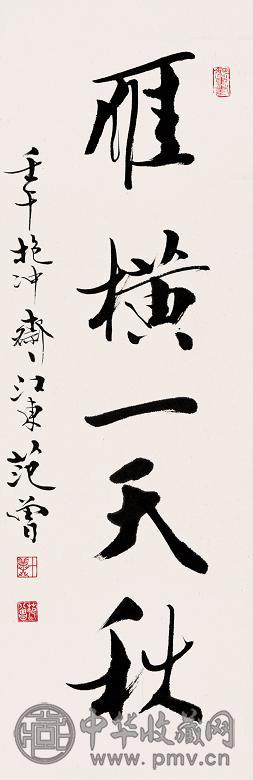 雁橫一天秋
壬午抱冲齋江東范曾
中华收藏网
www.pmv.cn